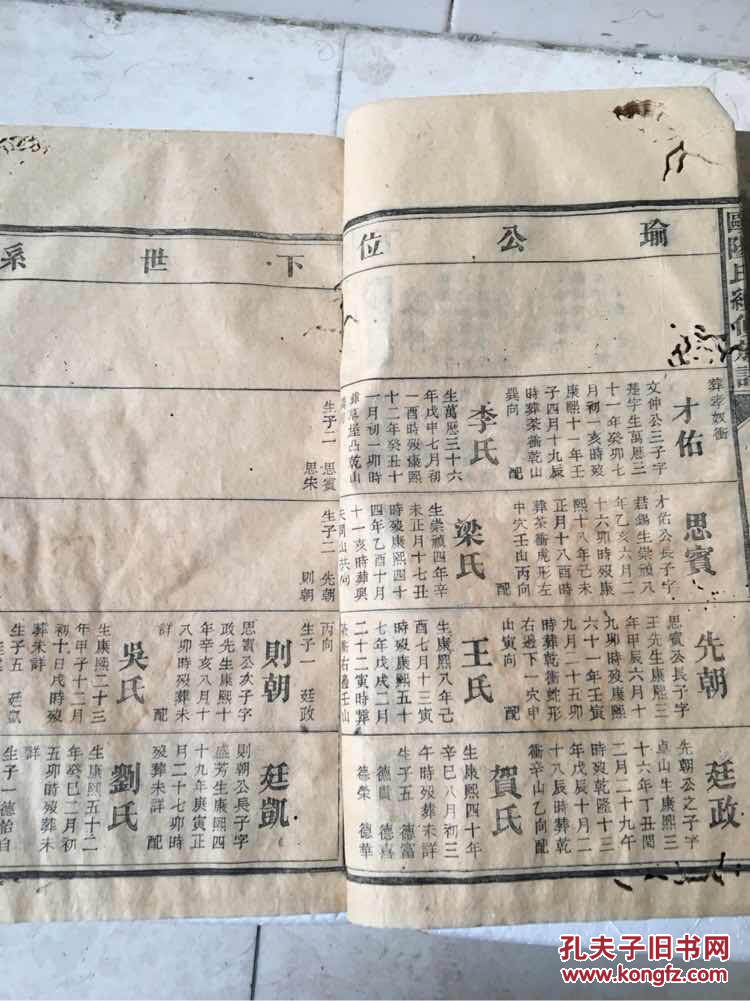 瑜公位
葬孝奴衝
才佑
文仲公三子字
楚宇生萬厯三
十一年癸卯七
月初一亥時殁
康熙十一年壬
子四月十九辰
時葬茶衝乾山
巽向 配
李氏
生萬厯三十六
年戊申七月初
一酉時殁康熙
十二年癸丑十
一月初一卯時
思賓
才佑公長子字
君錫生崇禎八
年乙亥六月二
十六卯時殁康
熙十八年己未
正月十八酉時
葬茶衝虎形左
中穴壬山丙向
配
梁氏
生崇禎四年辛
未正月十七丑
時殁康熙四十
四年乙酉十月
十一亥時葬與
先朝
思賓公長子字
壬先生康熙三
年甲辰六月十
九卯時殁康熙
六十一年壬寅
九月二十五卯
時葬乾衝蛇形
右邊下一穴申
山寅向 配
王氏
生康熙八年己
酉七月十三寅
時殁康熙五十
七年戊戌二月
二十二寅時葬
茶衝右邊壬山
廷政
先朝公之子字
卓山生康熙三
十六年丁丑閏
二月二十九午
時殁乾隆十三
年戊辰十月二
十八辰時葬乾
衝辛山乙向配
賀氏
生康熙四十年
辛巳八月初三
午時殁葬未詳
生子五 德富
德貴 德喜
德榮 德華
下世系
生子二 思賓
思宋
生子二 先朝
則朝
丙向
生子一 廷政
則朝
思賓公次子字
政先生康熙十
年辛亥八月十
八卯時殁葬未
詳 配
吳氏
生康熙二十三
年甲子十二月
初十日戌時殁
葬未詳
生子五 廷凱
廷凱
則朝公長子字
盛芳生康熙四
十九年庚寅正
月二十七卯時
殁葬未詳 配
劉氏
生康熙五十二
年癸巳二月初
五卯時殁葬未
詳
生子一德怡白
孔夫子旧书网
www.kongfz.com